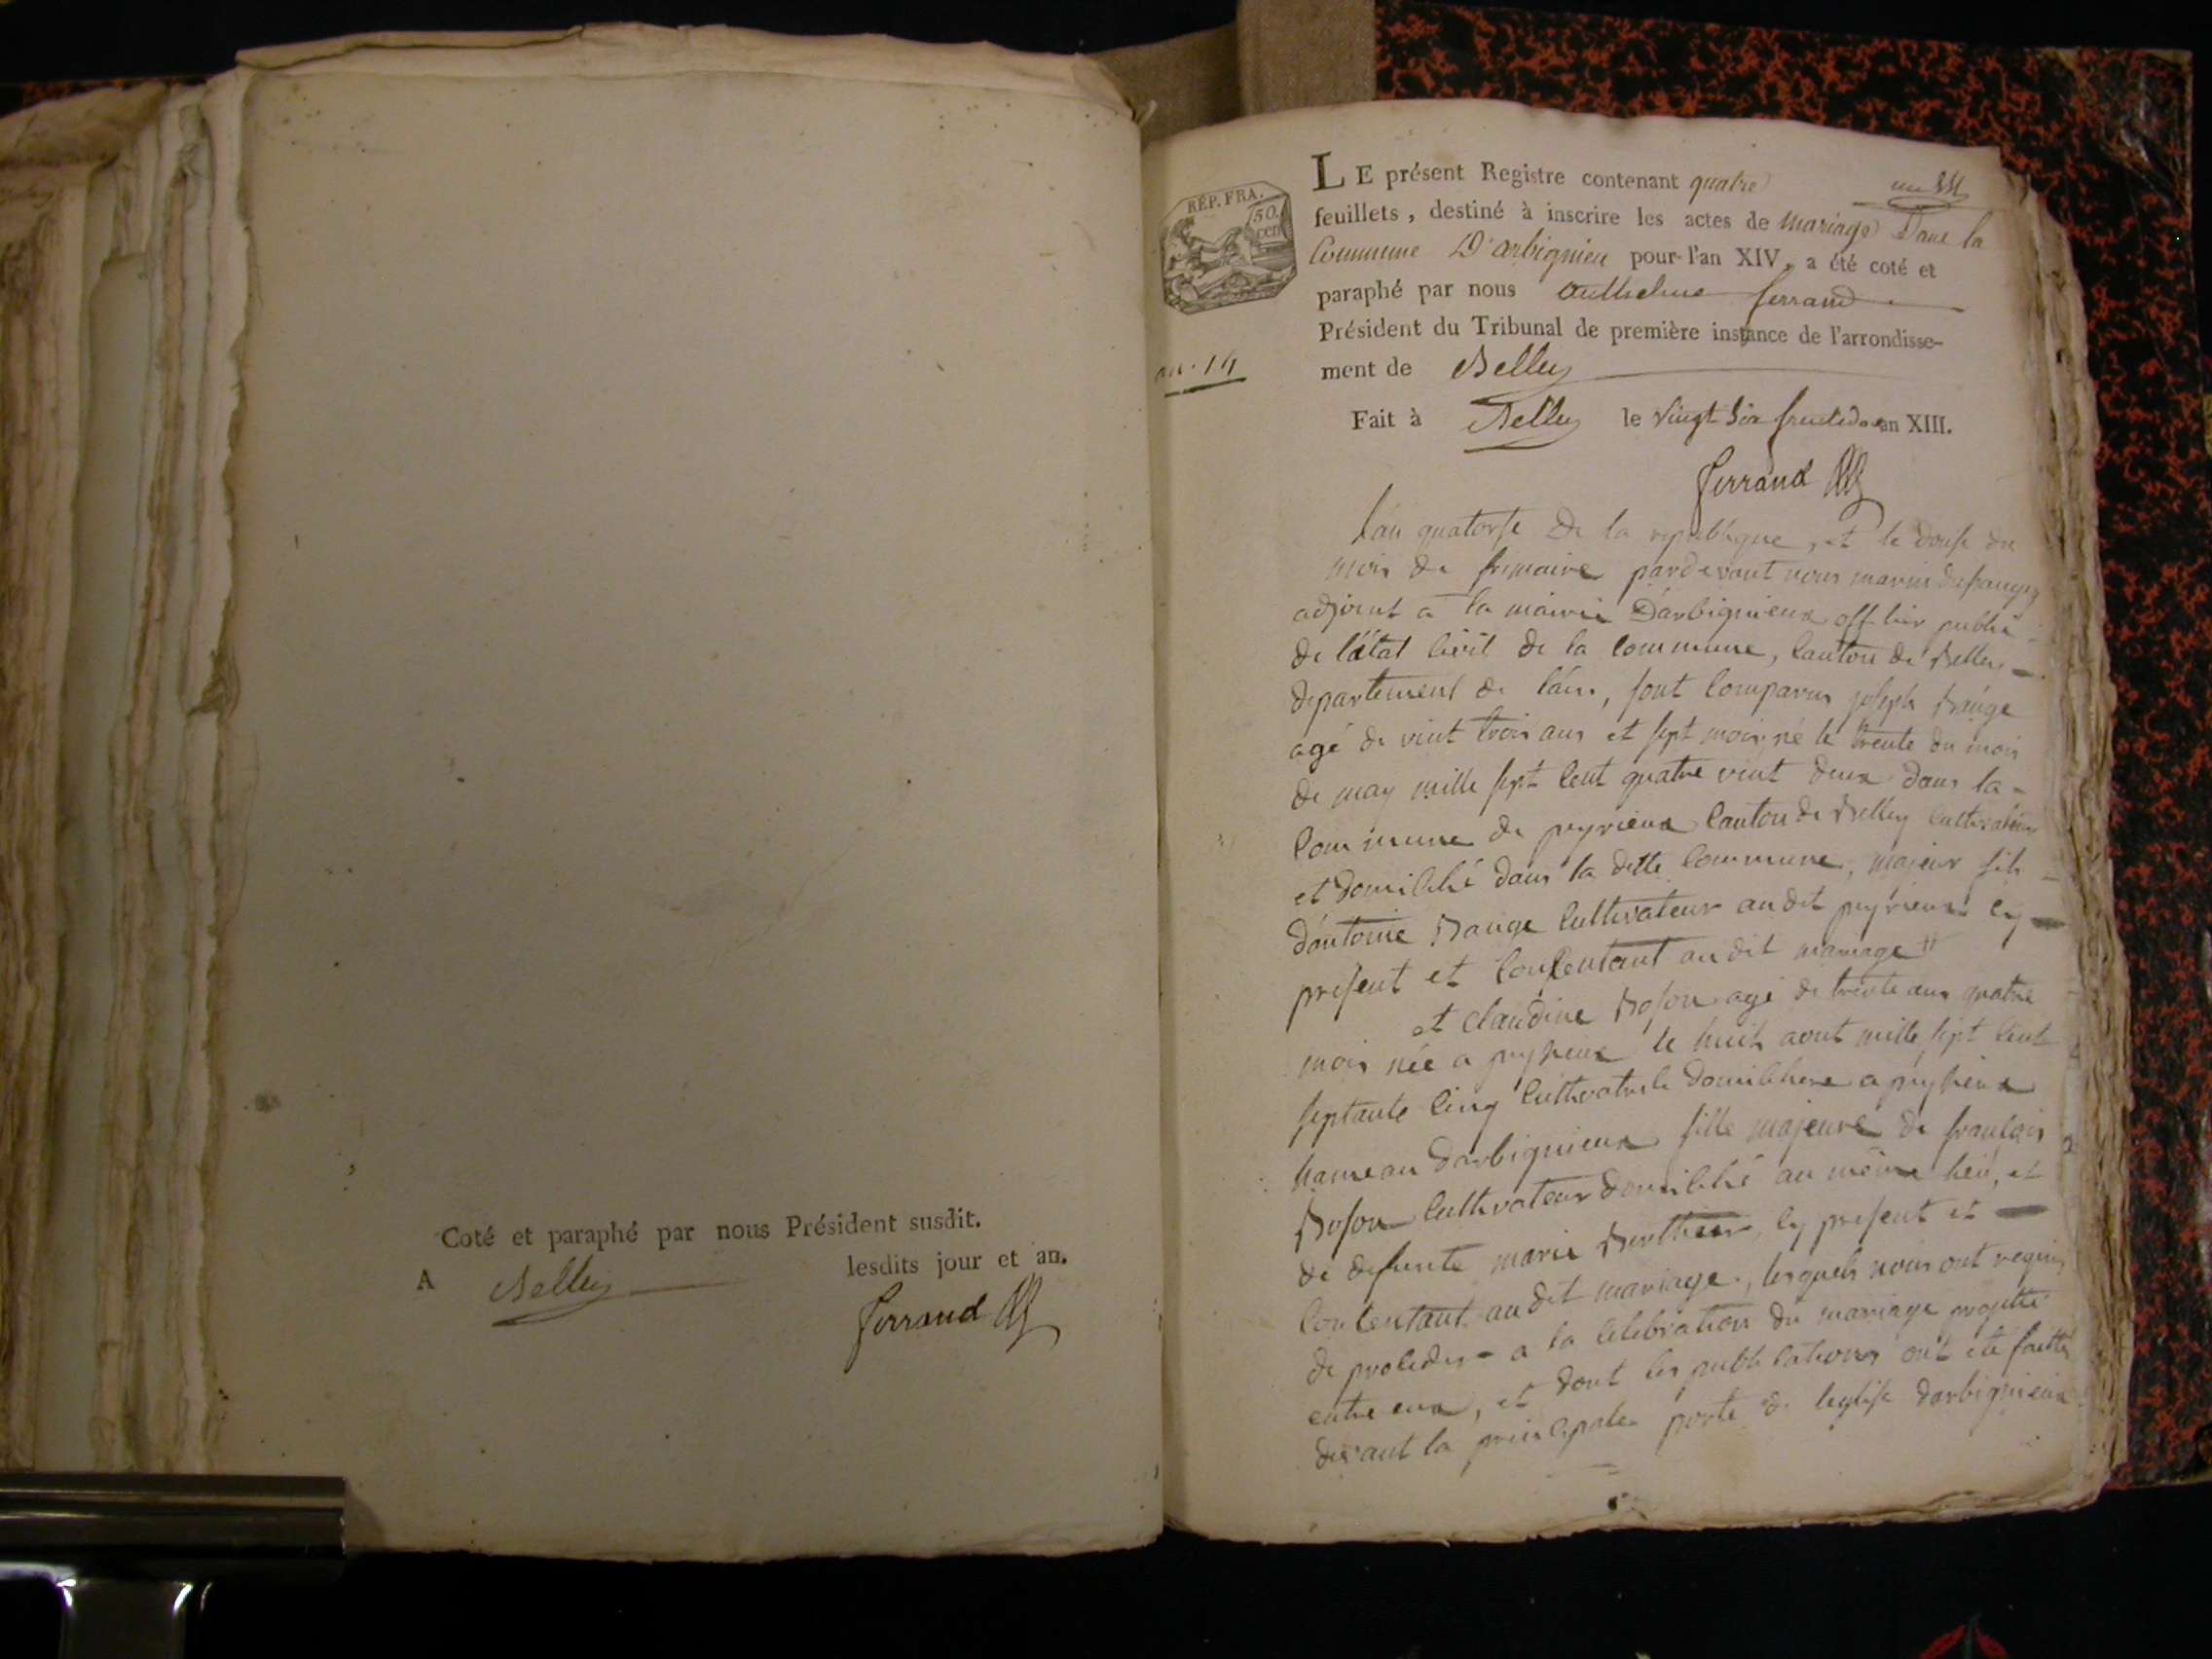 Coté et paraphé par nous Président susdit.
A Belley lesdits jour et an.
Ferrand
RÉP. FRA.
50.
cen
an. 14
LE présent Registre contenant quatre
feuillets, destiné à inscrire les actes de mariage Dans la
Commune D'arbignieu pour l'an XIV, a été coté et
paraphé par nous Anthelme ferrand
Président du Tribunal de première instance de l'arrondisse-
ment de Belley
Fait à Belley le vingt six fructidor an XIII.
Ferrand
L'an quatorse de la republique, et le douse du
mois de frimaire pardevant nous marin
adjoint a la mairie d'arbignieux officier public
de l'état civil de la commune, canton de Belley
departement de l'ain, sont comparus joseph Bauge
agé de vint trois ans et sept mois, né le trente du mois
de may mille sept cent quatre vint deux dans la
commune de peyrieux canton de Belley cultivateur
et domicilié dans la ditte commune, majeur fils
d'antoine Bauge cultivateur au dit peyrieux cy
present et consentant au dit mariage
et claudine Boson agé de trente ans quatre
mois née a peyzieux le huit aout mille sept cent
septante cinq cultivatrice domiciliere a peyzieux
hameau darbignieux fille majeure de francois
Boson cultivateur domicilié au même lieu, et
de defunte marie Berthier, cy present et
consentant au dit mariage, lesquels nous ont requis
de proceder a la celebration du mariage projetté
entre eux, et dont les publications ont été faittes
devant la principale porte de leglise darbignieux